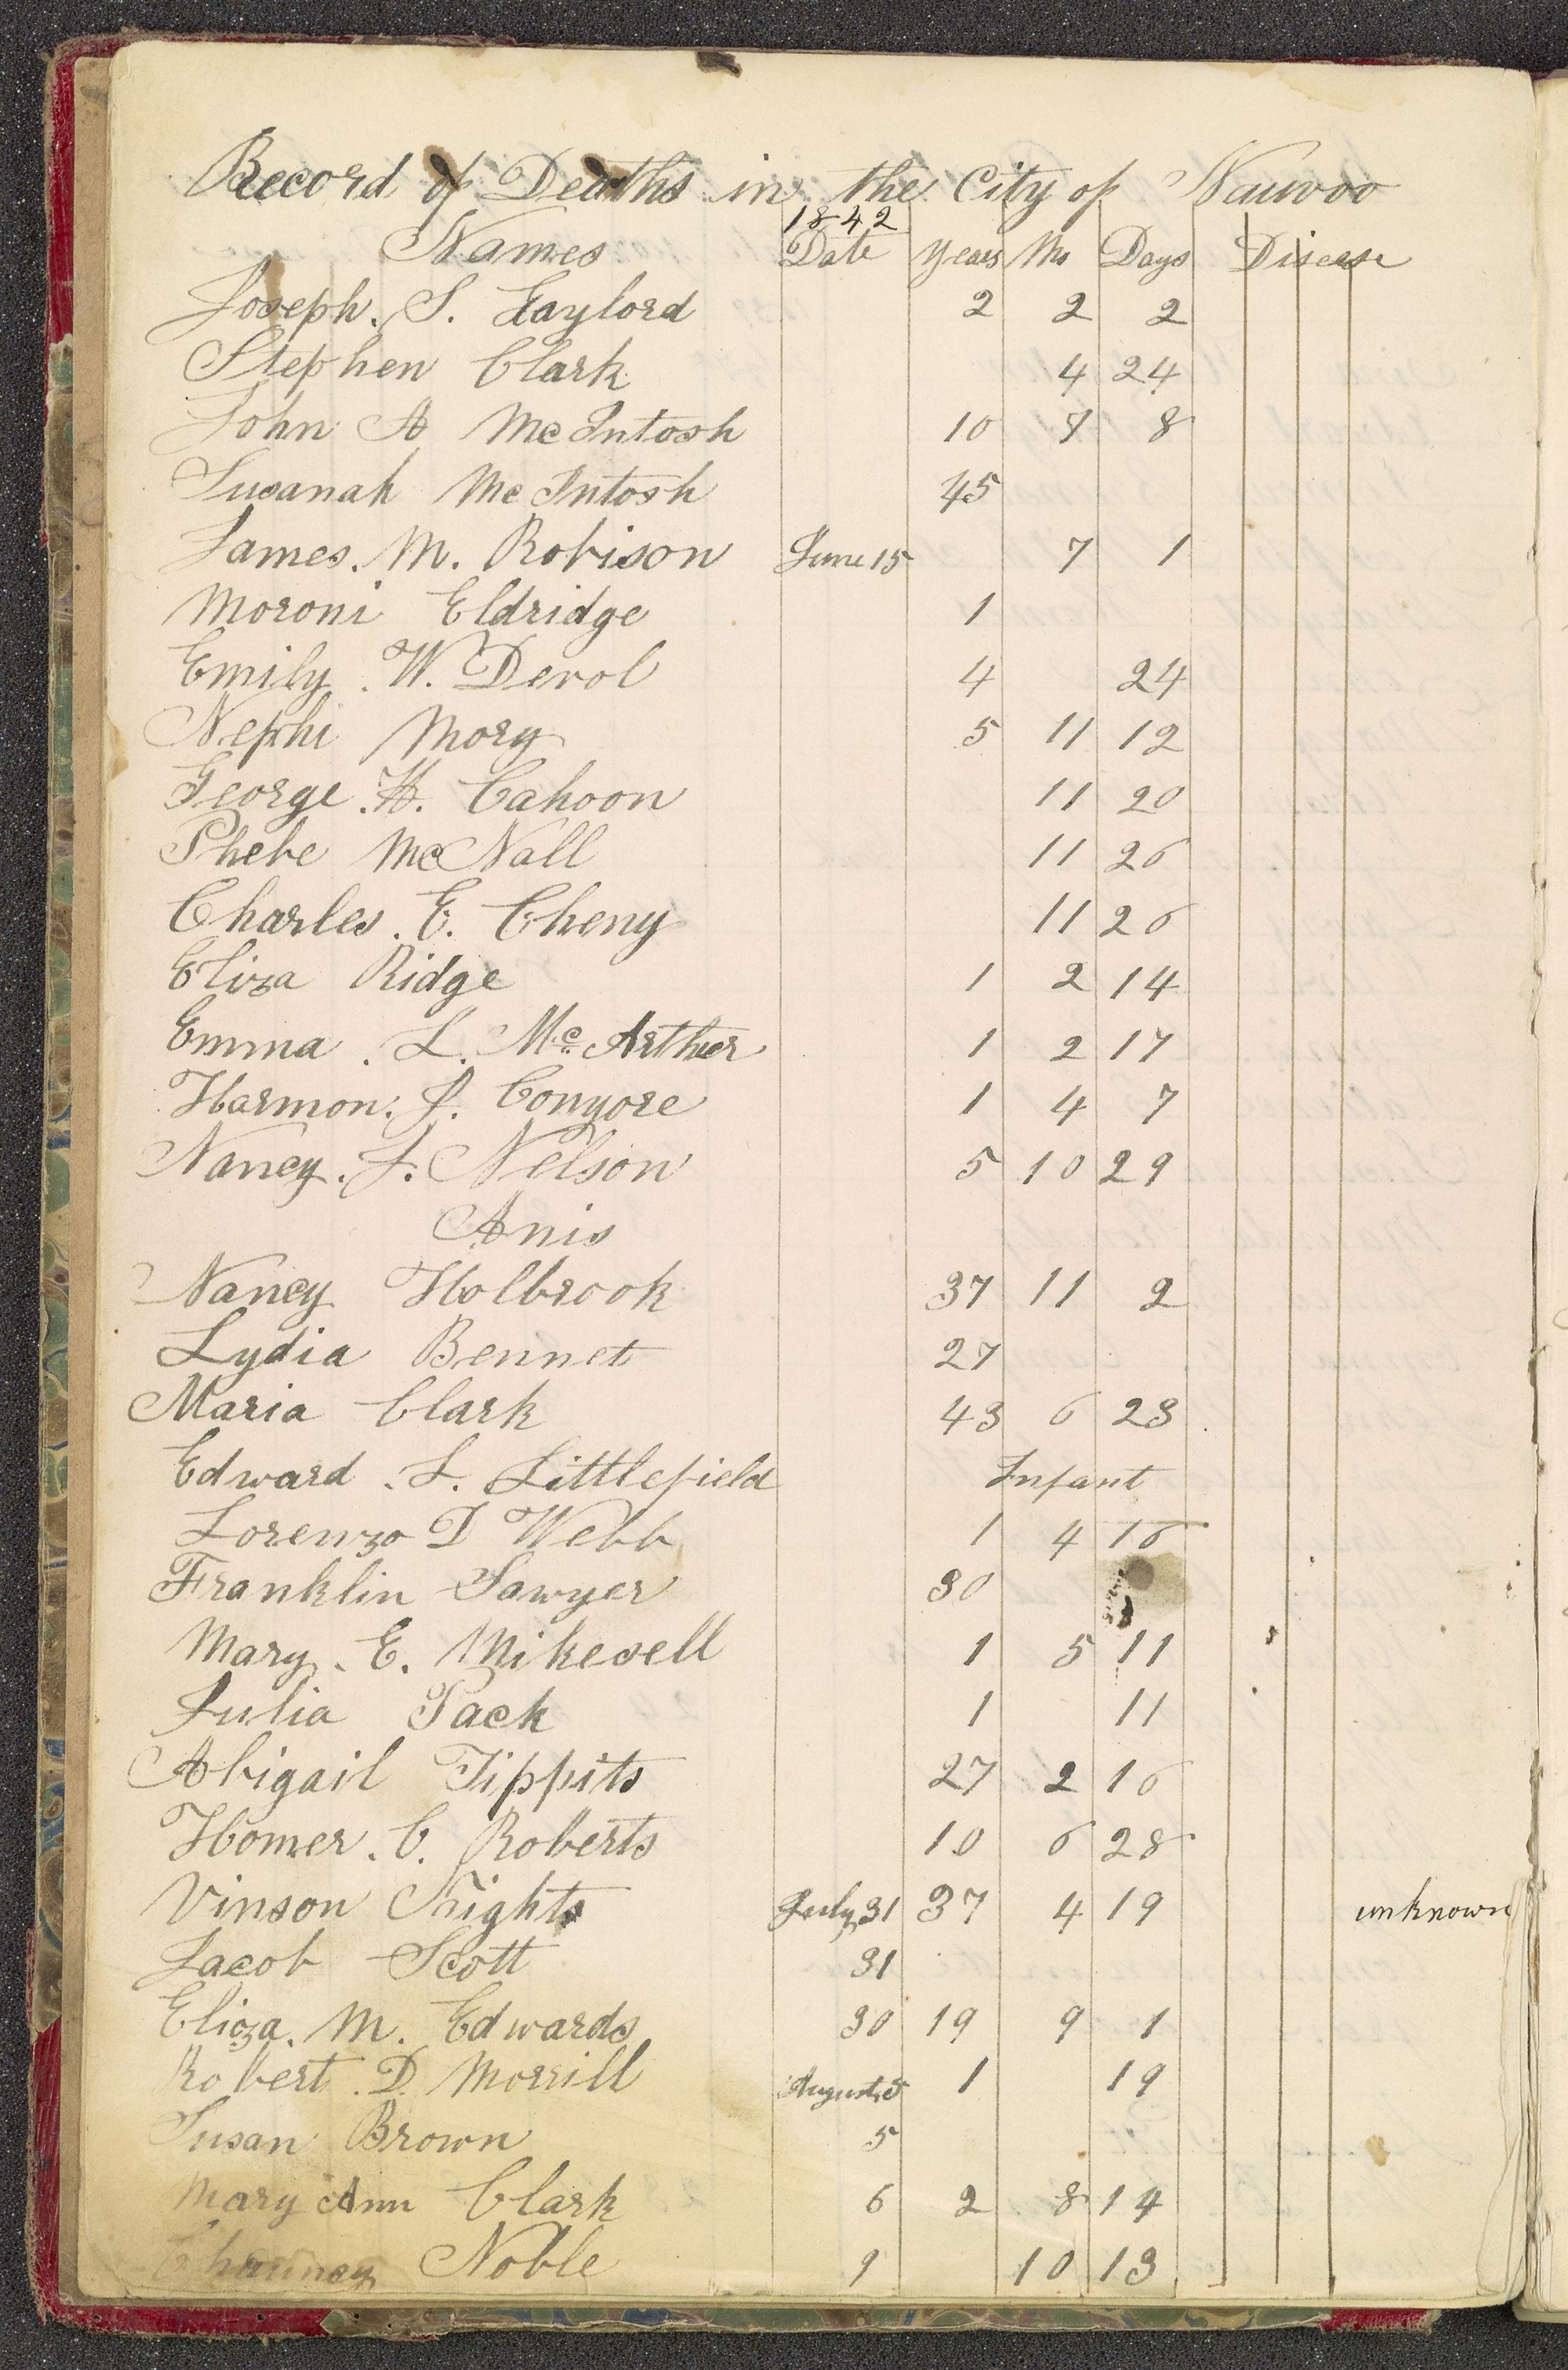 Record of Deaths in the City of Nauvoo
1842
Names Date Years Mo Days Disease
Joseph. S. Gaylord 2 2 2
Stephen Clark 4 24
John A McIntosh 10 7 8
Susanah McIntosh 45
James. M. Robison June 15 7 1
Moroni Eldridge 1
Emily. W. Derol 4 24
Nephi Mory 5 11 12
George. H. Cahoon 11 20
Phebe McNall 11 26
Charles. E. Cheny 11 26
Eliza Ridge 1 2 14
Emma. L. Mc Arthur 1 2 17
Harmon. J. Conyore 1 4 7
Nancy. J. Nelson 5 10 29
Anis
Nancy Holbrook 37 11 2
Lydia Bennet 27
Maria Clark 43 6 23
Edward. L. Littlefield Infant
Lorenzo D Webb 1 4 16
Franklin Sawyer 30
Mary. E. Mikesell 1 5 11
Julia Pack 1 11
Abigail Tippits 27 2 16
Homer. C. Roberts 10 6 28
Vinson Knights July 31 37 4 19 unknown
Jacob Scott 31
Eliza. M. Edwards 30 19 9 1
Robert. D. Morrill August 5 1 19
Susan Brown 5
Mary Ann Clark 6 2 8 14
Chauncy Noble 9 10 13